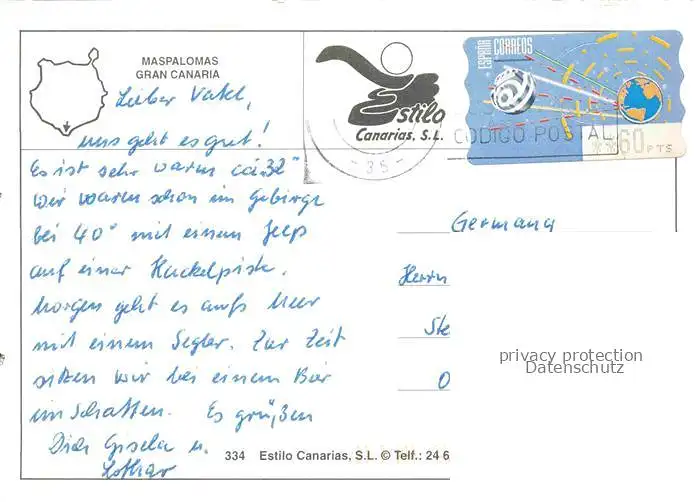 MASPALOMAS
GRAN CANARIA
Lieber Vater,
uns geht es gut!
Es ist sehr warm ca. 32°
wir waren schon im Gebirge
bei 40° mit einem Jeep
auf einer Huckelpiste.
Morgen geht es aufs Meer
mit einem Segler. Zur Zeit
sitzen wir bei einem Bier
im Schatten. Es grüßen
Dich Gisela u.
Lothar
334 Estilo Canarias, S.L. © Telf.: 24 6
Estilo
Canarias, S.L.
ESPAÑA CORREOS
CODIGO POSTAL
**60 PTS
-35-
Germany
Herrn
Ste
O
privacy protection
Datenschutz